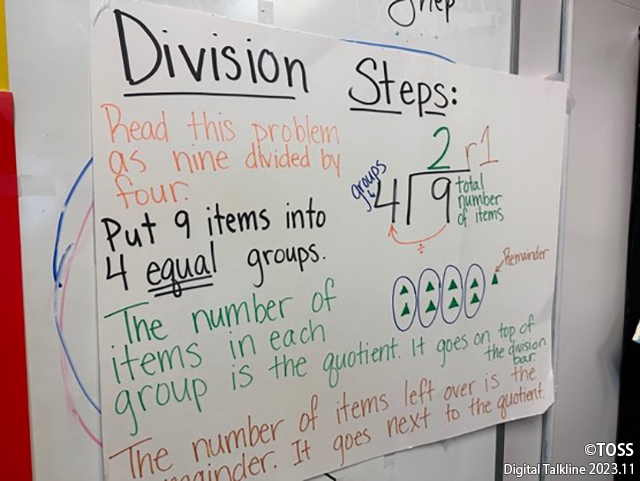 Division Steps:
Read this problem
as nine divided by
four.
Put 9 items into
4 equal groups.
The number of
items in each
group is the quotient. It goes on top of
the division
bar.
The number of items left over is the
remainder. It goes next to the quotient.
2 r1
groups
4 9
total
number
of items
÷
Remainder
©TOSS
Digital Talkline 2023.11